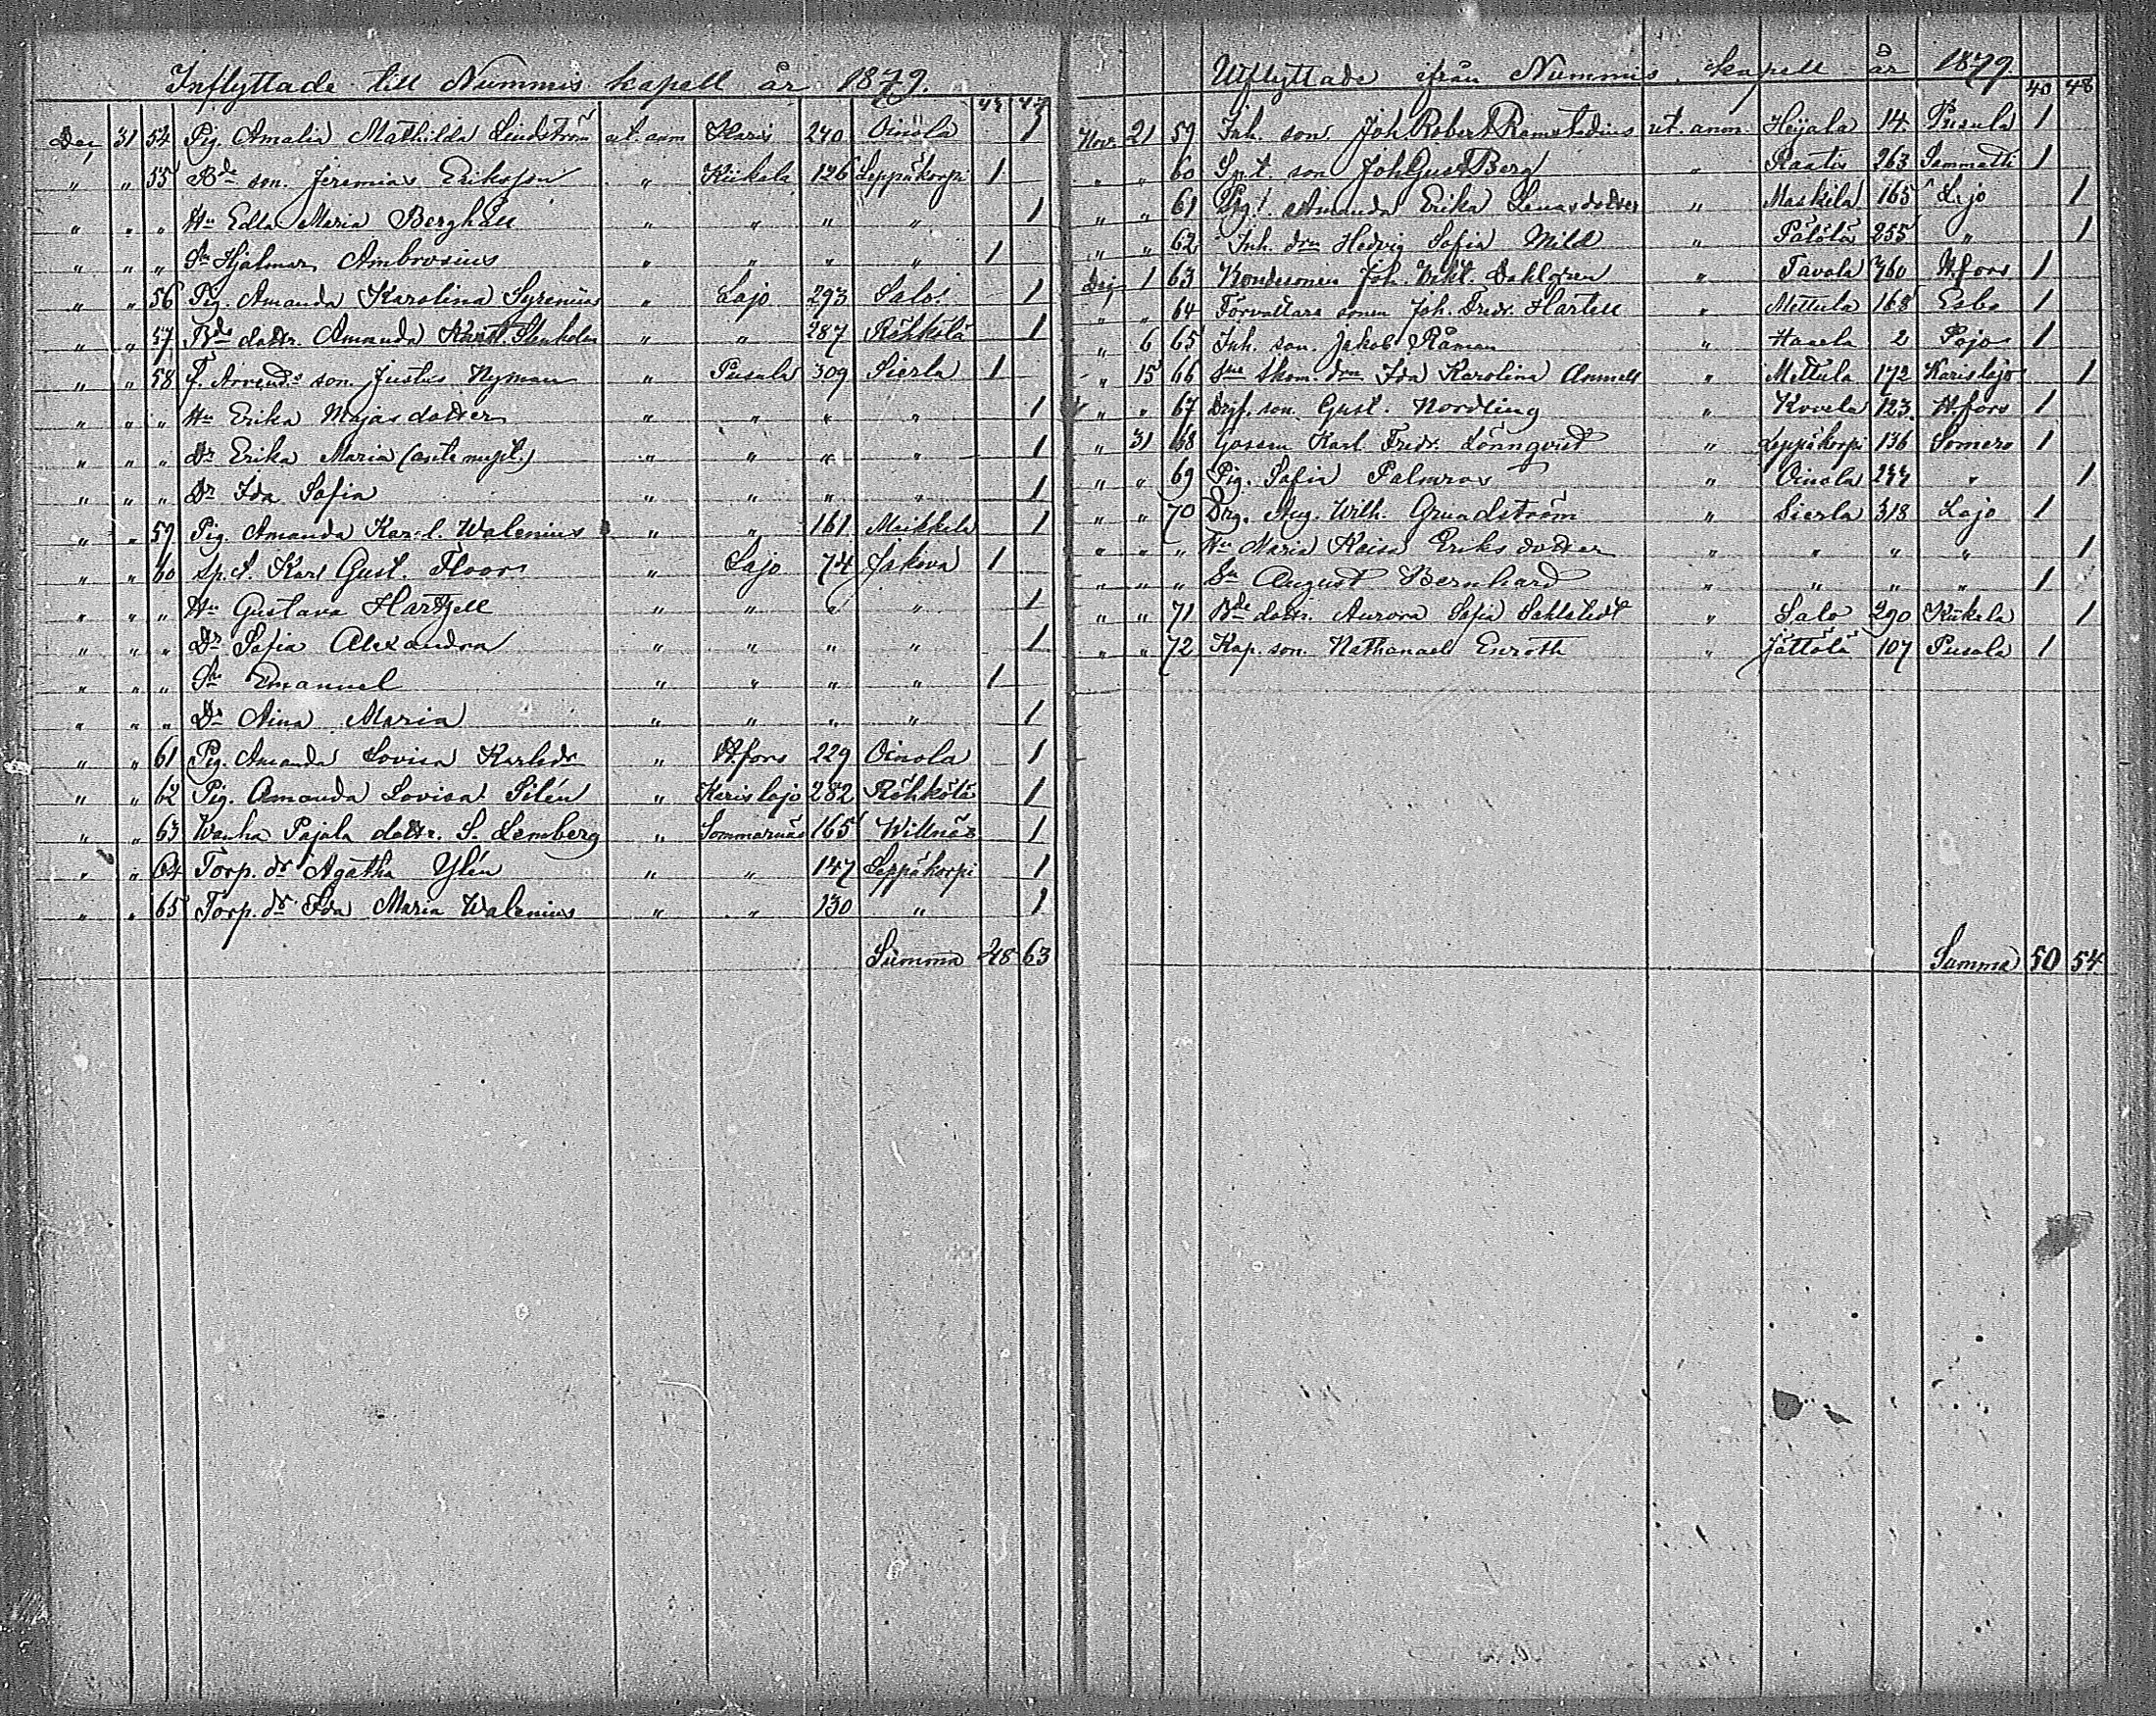 Inflyttade till Nummis kapell år 1879.
Dec 31 54 Pig. Amalia Mathilda Lindström ut. anm Karis 240 Oinola 1
" " 55 Bde son. Jeremias Eriksson " Kiikala 126 Leppäkorpi 1
" " " Hu Edla Maria Berghäll " " " " 1
" " " Sn Hjalmar Ambrosius " " " " 1
" " 56 Pig. Amanda Karolina Syrenius " Lojo 293 Salo 1
" " 57 Bde dottr. Amanda Stenholm " " 287 Röhkölä 1
" " 58 f. Arrend. son Justus Nyman " Pusula 309 Sierla 1
" " " Hu Erika Majasdotter " " " " 1
" " " Dr Erika Maria (ante nupt.) " " " " 1
" " " Dr Ida Sofia " " " " 1
" " 59 Pig. Amanda Karol. Walenius " " 161 Maikkela 1
" " 60 Sp. t. Karl Gust. Floor " Lojo 74 Jakova 1
" " " Hu Gustava Hartzell " " " " 1
" " " Dr Sofia Alexandra " " " " 1
" " " Sn Emanuel " " " " 1
" " " Dr Aina Maria " " " " 1
" " 61 Pig. Amanda Lovisa Karlsdr " Hfors 229 Oinola 1
" " 62 Pig. Amanda Lovisa Silén " Karislojo 282 Röhkölä 1
" " 63 Wanha Pajala dottr. S. Lemberg " Sommarnäs 165 Willnäs 1
" " 64 Torp. dr Agatha Ylén " " 147 Leppäkorpi 1
" " 65 Torp. dr Ida Maria Walenius " " 130 " 1
Summa 48 63
Utflyttade ifrån Nummis kapell år 1879.
40 48
Nov. 21 59 Inh. son. Joh Robert Ramstadius ut. anm. Heijala 14 Pusula 1
" " 60 son Joh Gust Berg " Raatis 263 Sammatti 1
" " 61 Pig. Amanda Erika Lenasdotter " Maskila 165 Lojo 1
" " 62 Inh. drn Hedvig Sofia Mild " Pälölä 255 " 1
1 63 Bondesonen Joh. Vikt. Dahlgren " Tavola 360 Hfors 1
" " 64 Förvaltare sonen Joh. Fredr. Hartell " Mettula 168 Esbo 1
" 6 65 Inh. son. Jakob Råman " Haarla 2 Pojo 1
" 15 66 Skom. drn Ida Karolina Ammell " Mettula 172 Karislojo 1
" " 67 Drg. son. Gust. Nordling " Kovela 123 Hfors 1
" 31 68 Gossen Karl Fredr. Lönnqvist " Leppäkorpi 136 Somero 1
" " 69 Pig. Sofia Palmros " Oinola 244 " 1
" " 70 Drg. Aug. Wilh. Grundström " Sierla 318 Lojo 1
" " " Hu Maria Kaisa Eriksdotter " " " " 1
" " " Sn August Bernhard " " " " 1
" " 71 Bde dottr. Aurora Sofia Sahlstedt " Salo 290 Kiikala 1
" " 72 Kap. son. Nathanael Enroth " Jättölä 107 Pusula 1
Summa 50 54